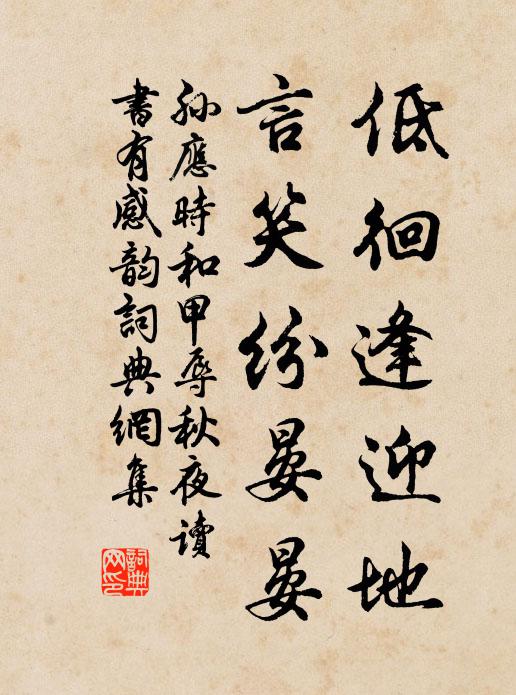 低徊逢迎地
言笑紛晏晏
孫應時和甲辱秋夜讀
書有感韵詞典網集
詞典
网印